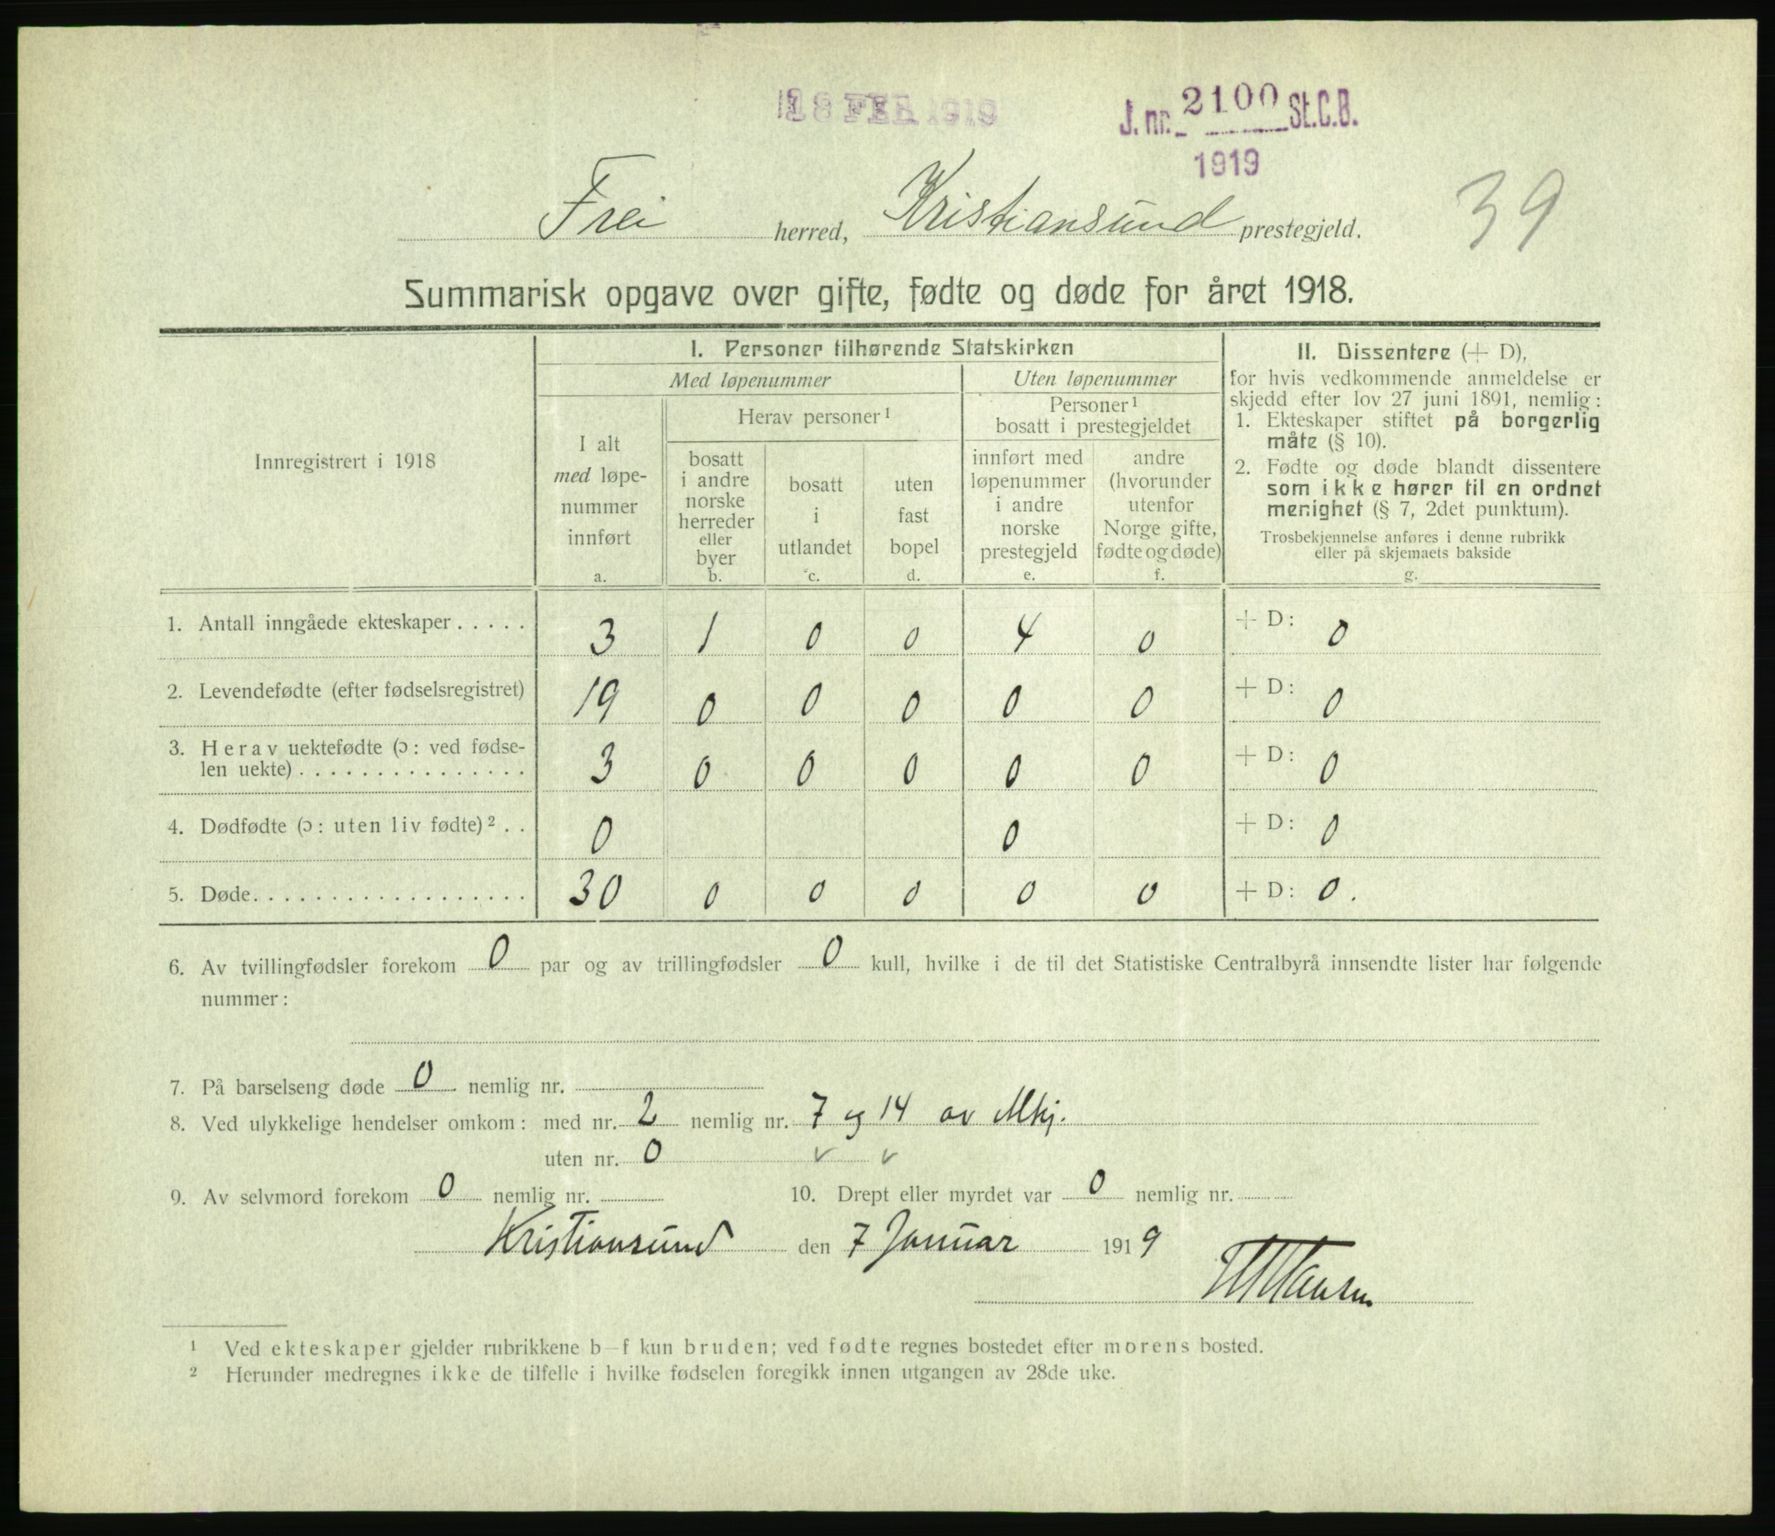 18 FEB 1919
J. nr. 2100 St.C.B.
1919
39
Frei herred, Kristiansund prestegjeld.
Summarisk opgave over gifte, fødte og døde for året 1918.
Innregistrert i 1918
I. Personer tilhørende Statskirken
Med løpenummer
Uten løpenummer
I alt
med løpe-
nummer
innført
a.
Herav personer¹
bosatt
i andre
norske
herreder
eller
byer
b.
bosatt
i
utlandet
c.
uten
fast
bopel
d.
Personer¹
bosatt i prestegjeldet
innført med
løpenummer
i andre
norske
prestegjeld
e.
andre
(hvorunder
utenfor
Norge gifte,
fødte og døde)
f.
II. Dissentere (+ D),
for hvis vedkommende anmeldelse er
skjedd efter lov 27 juni 1891, nemlig:
1. Ekteskaper stiftet på borgerlig
måte (§ 10).
2. Fødte og døde blandt dissentere
som ikke hører til en ordnet
menighet (§ 7, 2det punktum).
Trosbekjennelse anføres i denne rubrikk
eller på skjemaets bakside
g.
1. Antall inngåede ekteskaper . . . . . 3 1 0 0 4 0 + D: 0
2. Levendefødte (efter fødselsregistret) 19 0 0 0 0 0 + D: 0
3. Herav uektefødte (ɔ: ved fødse-
len uekte) . . . . . . . . . . . . . . . 3 0 0 0 0 0 + D: 0
4. Dødfødte (ɔ: uten liv fødte)² . . 0 0 + D: 0
5. Døde. . . . . . . . . . . . . . . . . . 30 0 0 0 0 0 + D: 0.
6. Av tvillingfødsler forekom 0 par og av trillingfødsler 0 kull, hvilke i de til det Statistiske Centralbyrå innsendte lister har følgende
nummer:
7. På barselseng døde 0 nemlig nr.
8. Ved ulykkelige hendelser omkom: med nr. 2 nemlig nr. 7 og 14 av Mkj.
uten nr. 0
9. Av selvmord forekom 0 nemlig nr. 10. Drept eller myrdet var 0 nemlig nr.
Kristiansund den 7 Januar 1919
Hansen
¹ Ved ekteskaper gjelder rubrikkene b–f kun bruden; ved fødte regnes bostedet efter morens bosted.
² Herunder medregnes ikke de tilfelle i hvilke fødselen foregikk innen utgangen av 28de uke.